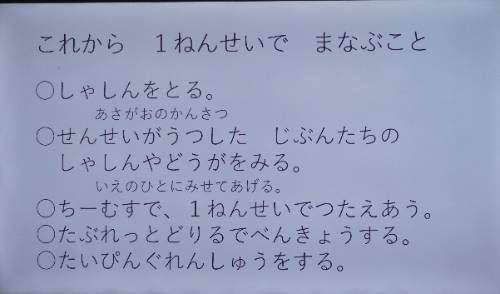 これから　１ねんせいで　まなぶこと
○しゃしんをとる。
あさがおのかんさつ
○せんせいがうつした　じぶんたちの
しゃしんやどうがをみる。
いえのひとにみせてあげる。
○ちーむすで、１ねんせいでつたえあう。
○たぶれっとどりるでべんきょうする。
○たいぴんぐれんしゅうをする。